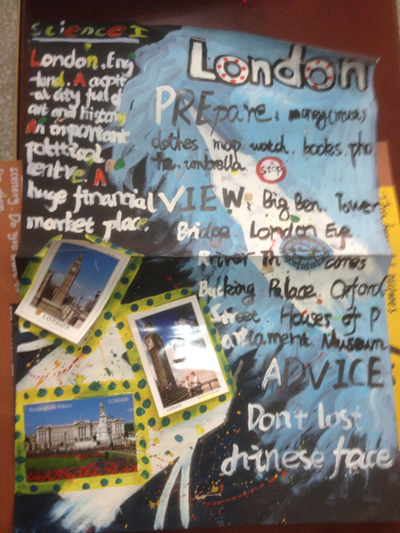 Science I
London
London, Eng
-land. A capit
al city full of
art and history
An important
political
centre. A
huge financial
market place.
PREpare: money(most)
clothes. map. watch. books. pho
ne. umbrella.
STOP
VIEW: Big Ben. Tower
Bridge. London Eye.
River Th
Bucking Palace. Oxford
Street. Houses of P
arliament. Museum
ADVICE:
Don't lost
chinese face
LONDON
LONDON
Buckingham Palace